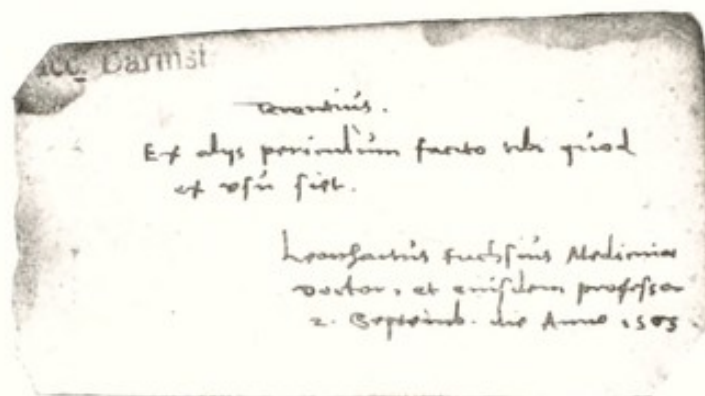 acc. Darmst
Terentius.
Ex alijs periculum facito tibi quod
ex usu siet.
Leonhartus Fuchsius Medicinae
doctor, et eiusdem professor
2. Septemb. die Anno 1563.